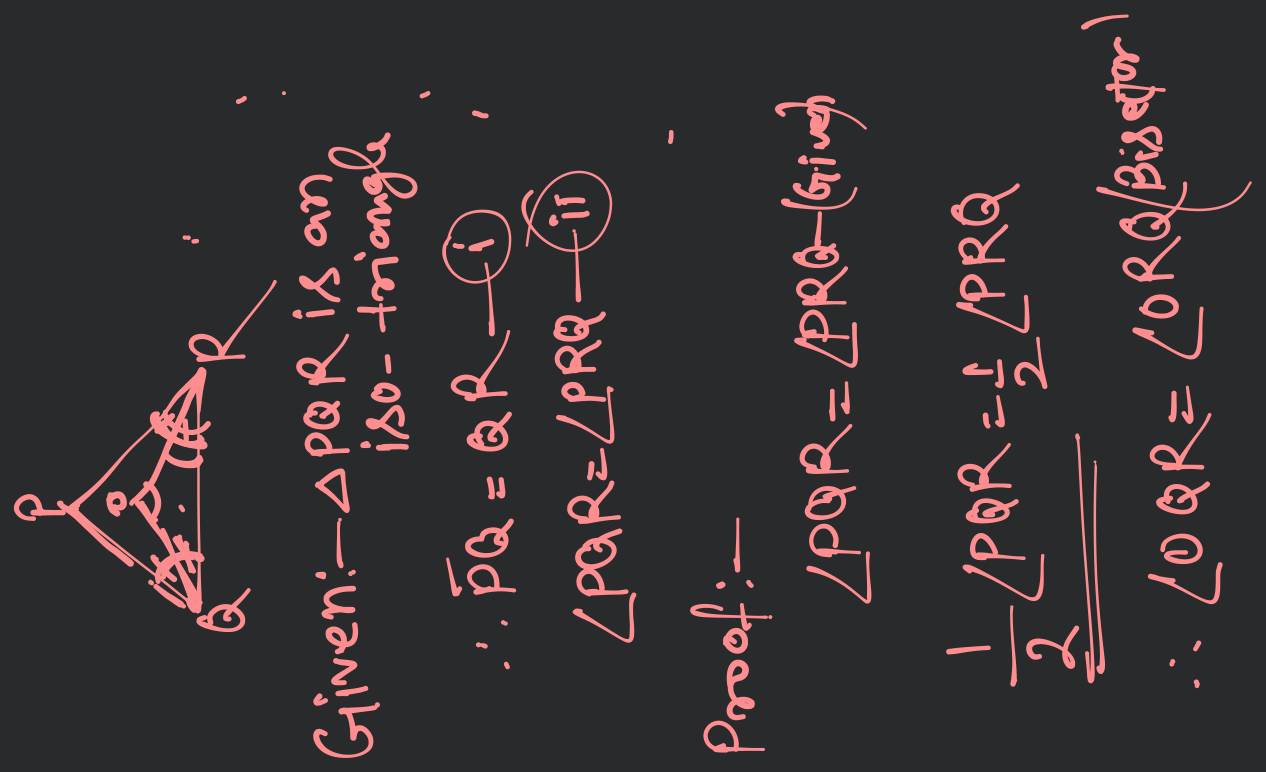 P
O
Q R
Given:— △PQR is an
iso-triangle
∴ PQ = QR — i
∠PQR = ∠PRQ — ii
Proof:—
∠PQR = ∠PRQ — (Given)
1/2 ∠PQR = 1/2 ∠PRQ
∴ ∠OQR = ∠ORQ (Bisector)